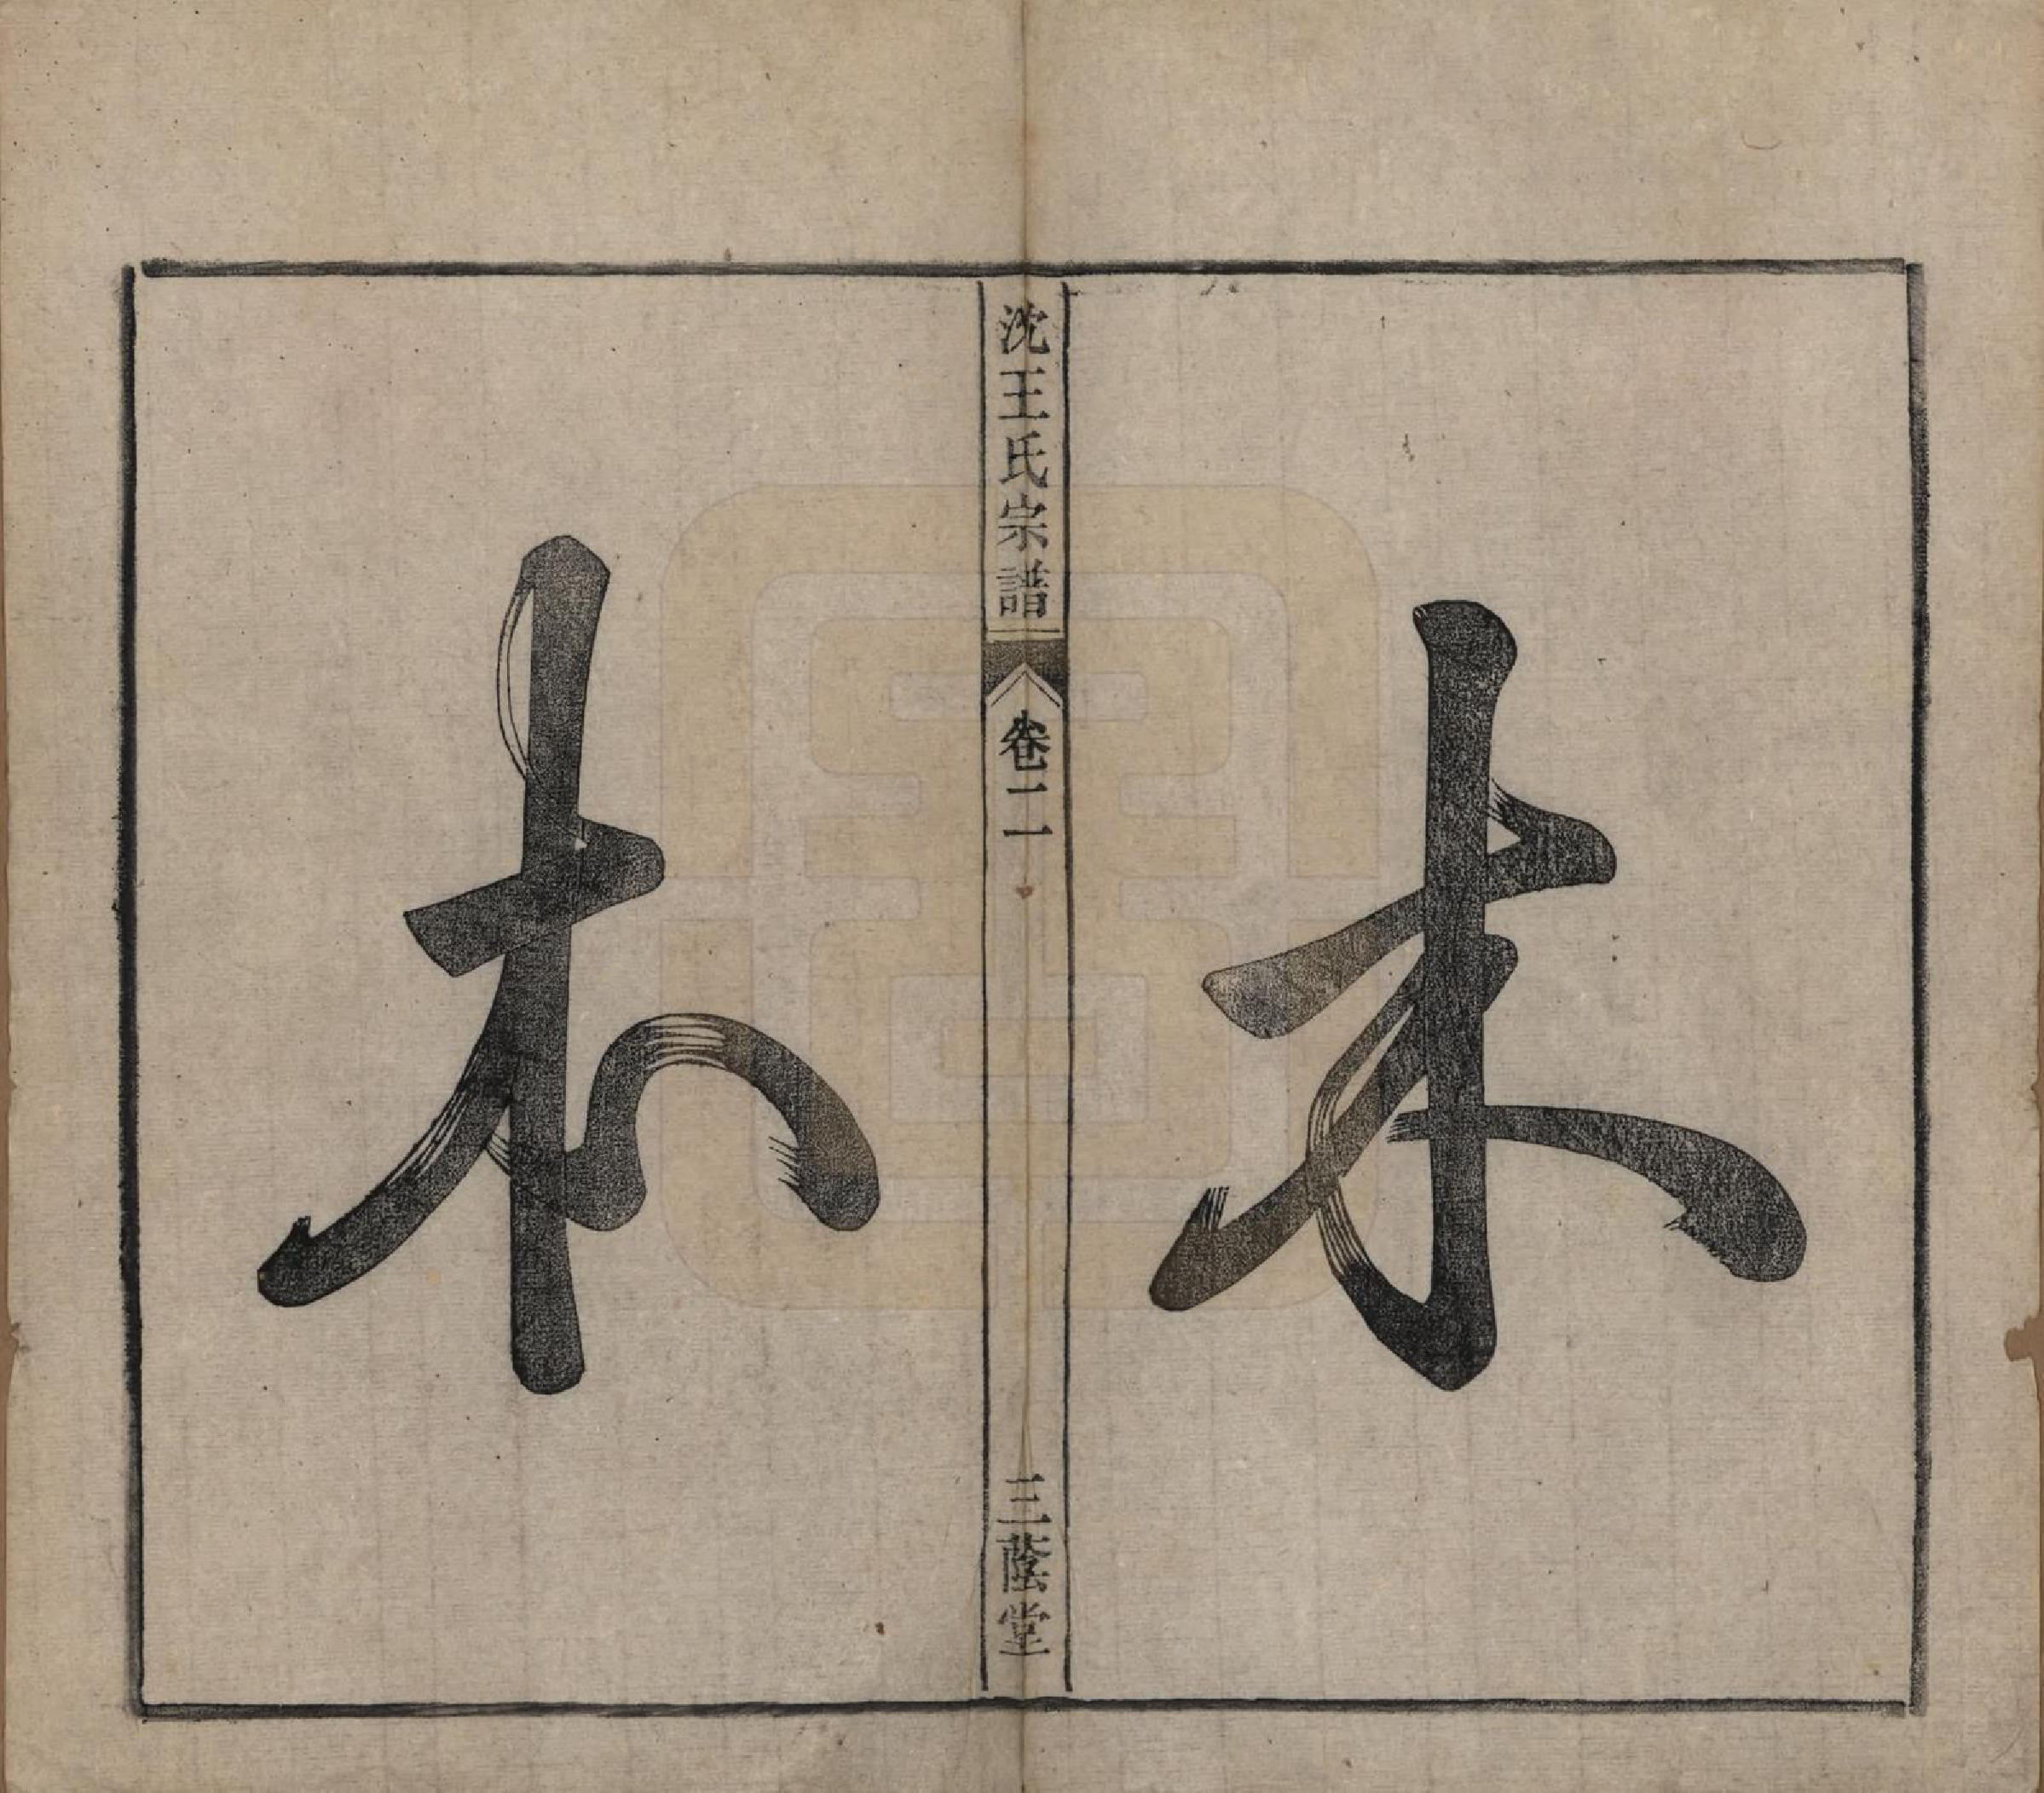 木
沈王氏宗譜
卷二
三蔭堂
本